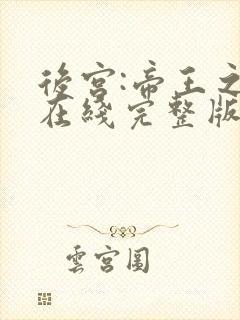 後宮:帝王之
在綫完整版
雲宮圖